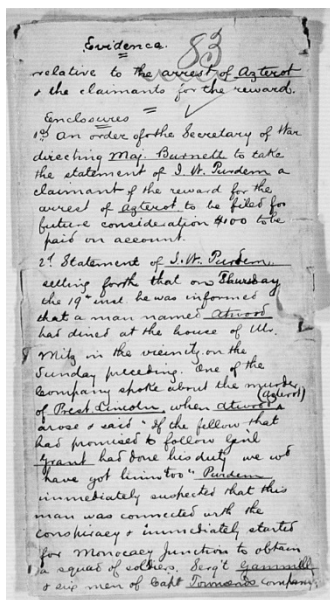 Evidence. 83
relative to the arrest of Azterot
& the claimants for the reward.
Enclosures
1st An order of the Secretary of War
directing Maj. Burnett to take
the statement of J. W. Purdem a
claimant of the reward for the
arrest of Azterot to be filed for
future consideration $100 to be
paid on account.
2d Statement of J. W. Purdem
setting forth that on Thursday
the 19th inst he was informed
that a man named Atwood
had dined at the house of Mr.
Metz in the vicinity on the
Sunday preceding. One of the
Company spoke about the murder
of Prest Lincoln, when Atwood (Azterot)
arose & said "If the fellow that
had promised to follow Genl
Grant had done his duty we wd
have got him too" Purdem
immediately suspected that this
man was connected with the
conspiracy & immediately started
for Monocacy Junction to obtain
a squad of soldiers. Serg't Gemmill
& six men of Capt Townsends Company